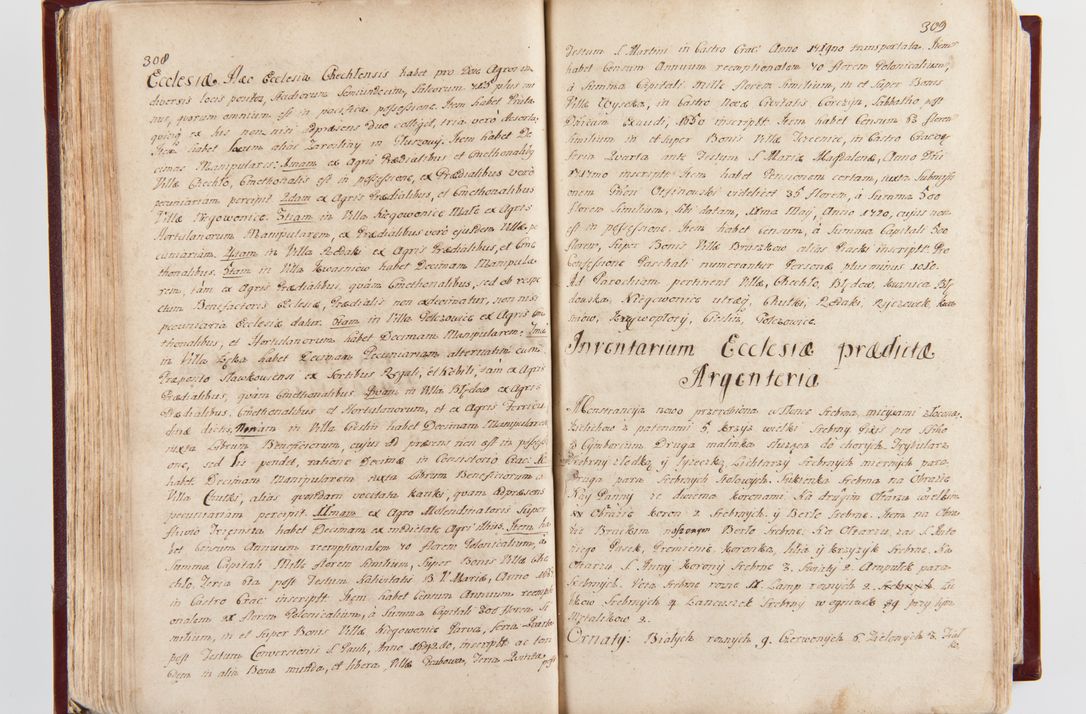 308
Ecclesiæ. Hæc Ecclesia Chechlensis habet pro Dote Agros in
diversis locis positos, Stadiorum Semiundecim, Sulcorum 748 plus mi
nus, quorum omnium est in pacifica possessione. Item habet Prata
quinq ex his non nisi ad præsens duo colligit, tria verò deserta,
Item habet locum alias Zarosliny in Gluszowy. Item habet De
cimas Manipulares: Imam ex Agris Prædialibus et Cmethonalibq
Villæ Chechlo, Cmethonalis est in possessione, ex Prædialibus verò
pecuniariam percipit. 2dam ex Agris Prædialibus, et Cmethonalibus
Villæ Niegowonice. 3tiam in Villa Niegowonice Małe ex Agris
Hortulanorum Manipularem, ex Prædialibus verò ejusdem Villæ pe
cuniariam. 4tam in Villa Rodaki ex Agris Prædialibus, et Cme
thonalibus. 5tam in Villa Kwasniow habet Decimam Manipula
rem, tàm ex Agris Prædialibus, quàm Cmethonalibus, sed ob respe
ctum Benefactoris Ecclesiæ, Prædialis non exdecimatur, non nisi
pecuniaria Ecclesiæ datur. 6tam in Villa Golczowice ex Agris Cme
thonalibus, et Hortulanorum habet Decimam Manipularem. 7mã
in Villa habet Decimam Pecuniariam alternatim cum
Præposito Slawkoviensi ex Sortibus Regali, et Nobili, tam ex Agris
Prædialibus, quam Cmethonalibus. 8vam in Villa Błędow ex Agris
Prædialibus, Cmethonalibus et Hortulanorum, et ex Agris
dictis, Nonam in Villa Cieślin habet Decimam Manipularem
juxta Librum Beneficiorum, cujus ad præsens non est in possessi
one, sed lis pendet, ratione Decimæ in Consistorio Crac:
habet Decimam Manipularem juxta Librum Beneficiorum in
Villa Chutki, alias quondam vocitata Kariki, quam ad præsens
pecuniariam percipit. XImam ex Agro Molendinatoris Super
fluvio habet Decimam ex medietate Agri illius. Item ha
bet Censum Annuum reemptionalem 70 florem Polonicalium, à
Summa Capitali Mille florem similium, Super Bonis Villæ Che
chlo, Feria 6ta post Festum Nativitatis B. V. Mariæ, Anno
in Castro Crac: inscriptâ. Item habet Censum Annuum reempti
onalem florem Polonicalium, à Summa Capitali 800 florem Si
milium, in et Super Bonis Villæ Niegowonice Parva, Feria Quarta
post Festum Conversionis S. Pauli, Anno inscriptâ ac tan
dem in alia Bona munda, et libera, Villæ Grabowa, Feria Quinta post
309
Festum S. Martini in Castro Crac: Anno transportata. Item
habet Censum Annuum reemptionalem 70 florem Polonicalium,
à Summa Capitali Mille florem Similium, in et Super Bonis
Villæ Wysoka, in Castro Novæ Civitatis Corczyn, Sabbatho post
Dñicam Exaudi, 1650 inscriptâ. Item habet Censum 53 florem
similium in et super Bonis Villæ in Castro Cracov:
Feria Quarta ante Festum S. Mariæ Magdalenæ, Anno Dñi
inscriptâ. Item habet Pensionem certam, juxta Submissi
onem Dñi videlicet 35 florem, à Summa 500
florem Similium, sibi datam, Ima May, Anno 1720, cujus non
est in possessione. Item habet Censum, à Summa Capitali 300
florem, Super Bonis Villæ Bruczkow alias Piaski inscriptâ. Pro
Confessione Paschali numerantur Personæ plus minus 1080.
Ad Parochiam pertinent Villæ, Chechlo, Błędow, Kuznica Błę
dowska, Niegowonice utræq, Chutki, Rodaki, Ryczowek Kwa
sniow, Krzywopłoty, Cieślin, Golczowice.
Inventarium Ecclesiæ prædictæ
Argenteria
Monstrancyja nowo przerobiona w Słonce srebrna, miejscami złocona.
Kielichow z patenami 5. krzyż wielki Srebrny
z Cymborium. Druga malinka służąca do chorych. Trybularz
Srebrny z łodką y łyżeczką Lichtarzy Srebrnych miernych para
Druga para Srebrnych Stołowych. Sukienka Srebrna na Obrazie
Nay: Panny ze dwiema koronami. Na drugim Ołtarzu wielkim
Obrazie koron 2 Srebrnych. y Berło Srebrne. Item na Obra
zie Bractkim Berło Srebrne. Na Ołtarzu zaś S. Anto
niego Pasek, Promienie, koronka, lilia y krzyżyk srebrne. Na
Ołtarzu S. Anny Korony Srebrne 3. Swiety 2. Ampułek para
Srebrnych. Vota Srebrne rożne Lamp rożnych 2. Srebrnych
Srebrnych 4. Łancuszek Srebrny w ogniwek 84 przy tym
Metalikow 2.
Ornaty: Białych rożnych 9. Czerwonych 6. Zielonych 3. Fial
ko